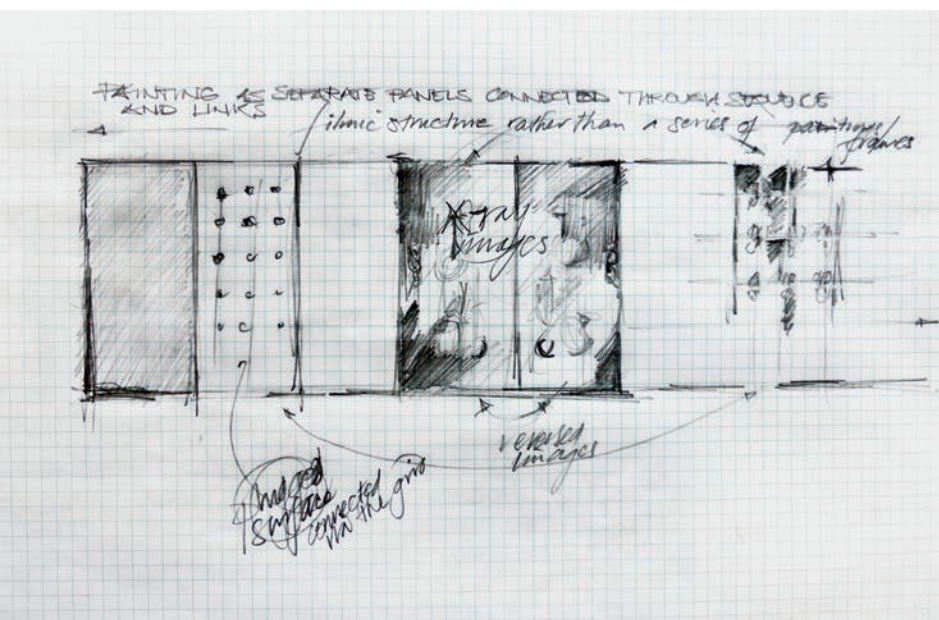 PAINTING AS SEPARATE PANELS CONNECTED THROUGH SEQUENCE
AND LINKS
structure rather than a series of paintings/
frames
X-ray
images
reversed
images
surface
connected
via the grid